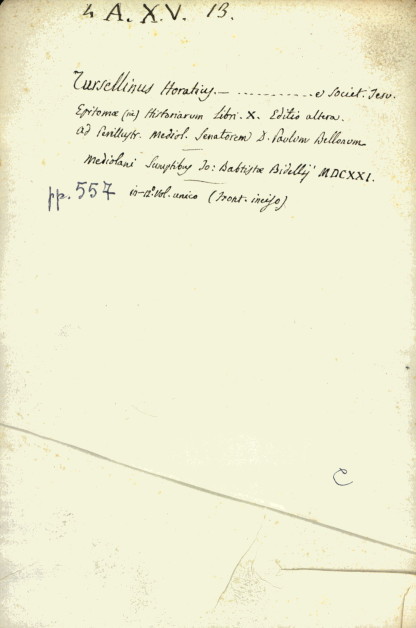 4 A. X.V. 13.
Tursellinus Horatius. — .......... e Societ. Iesu.
Epitomæ (in) Historiarum Libri. X. Editio altera.
ad Perillustr. Mediol. Senatorem D. Paulum Bellonum
Mediolani Sumptibus Io: Baptistæ Bidellij MDCXXI.
pp. 557 in-12º Vol. unico (Front. inciso)
C